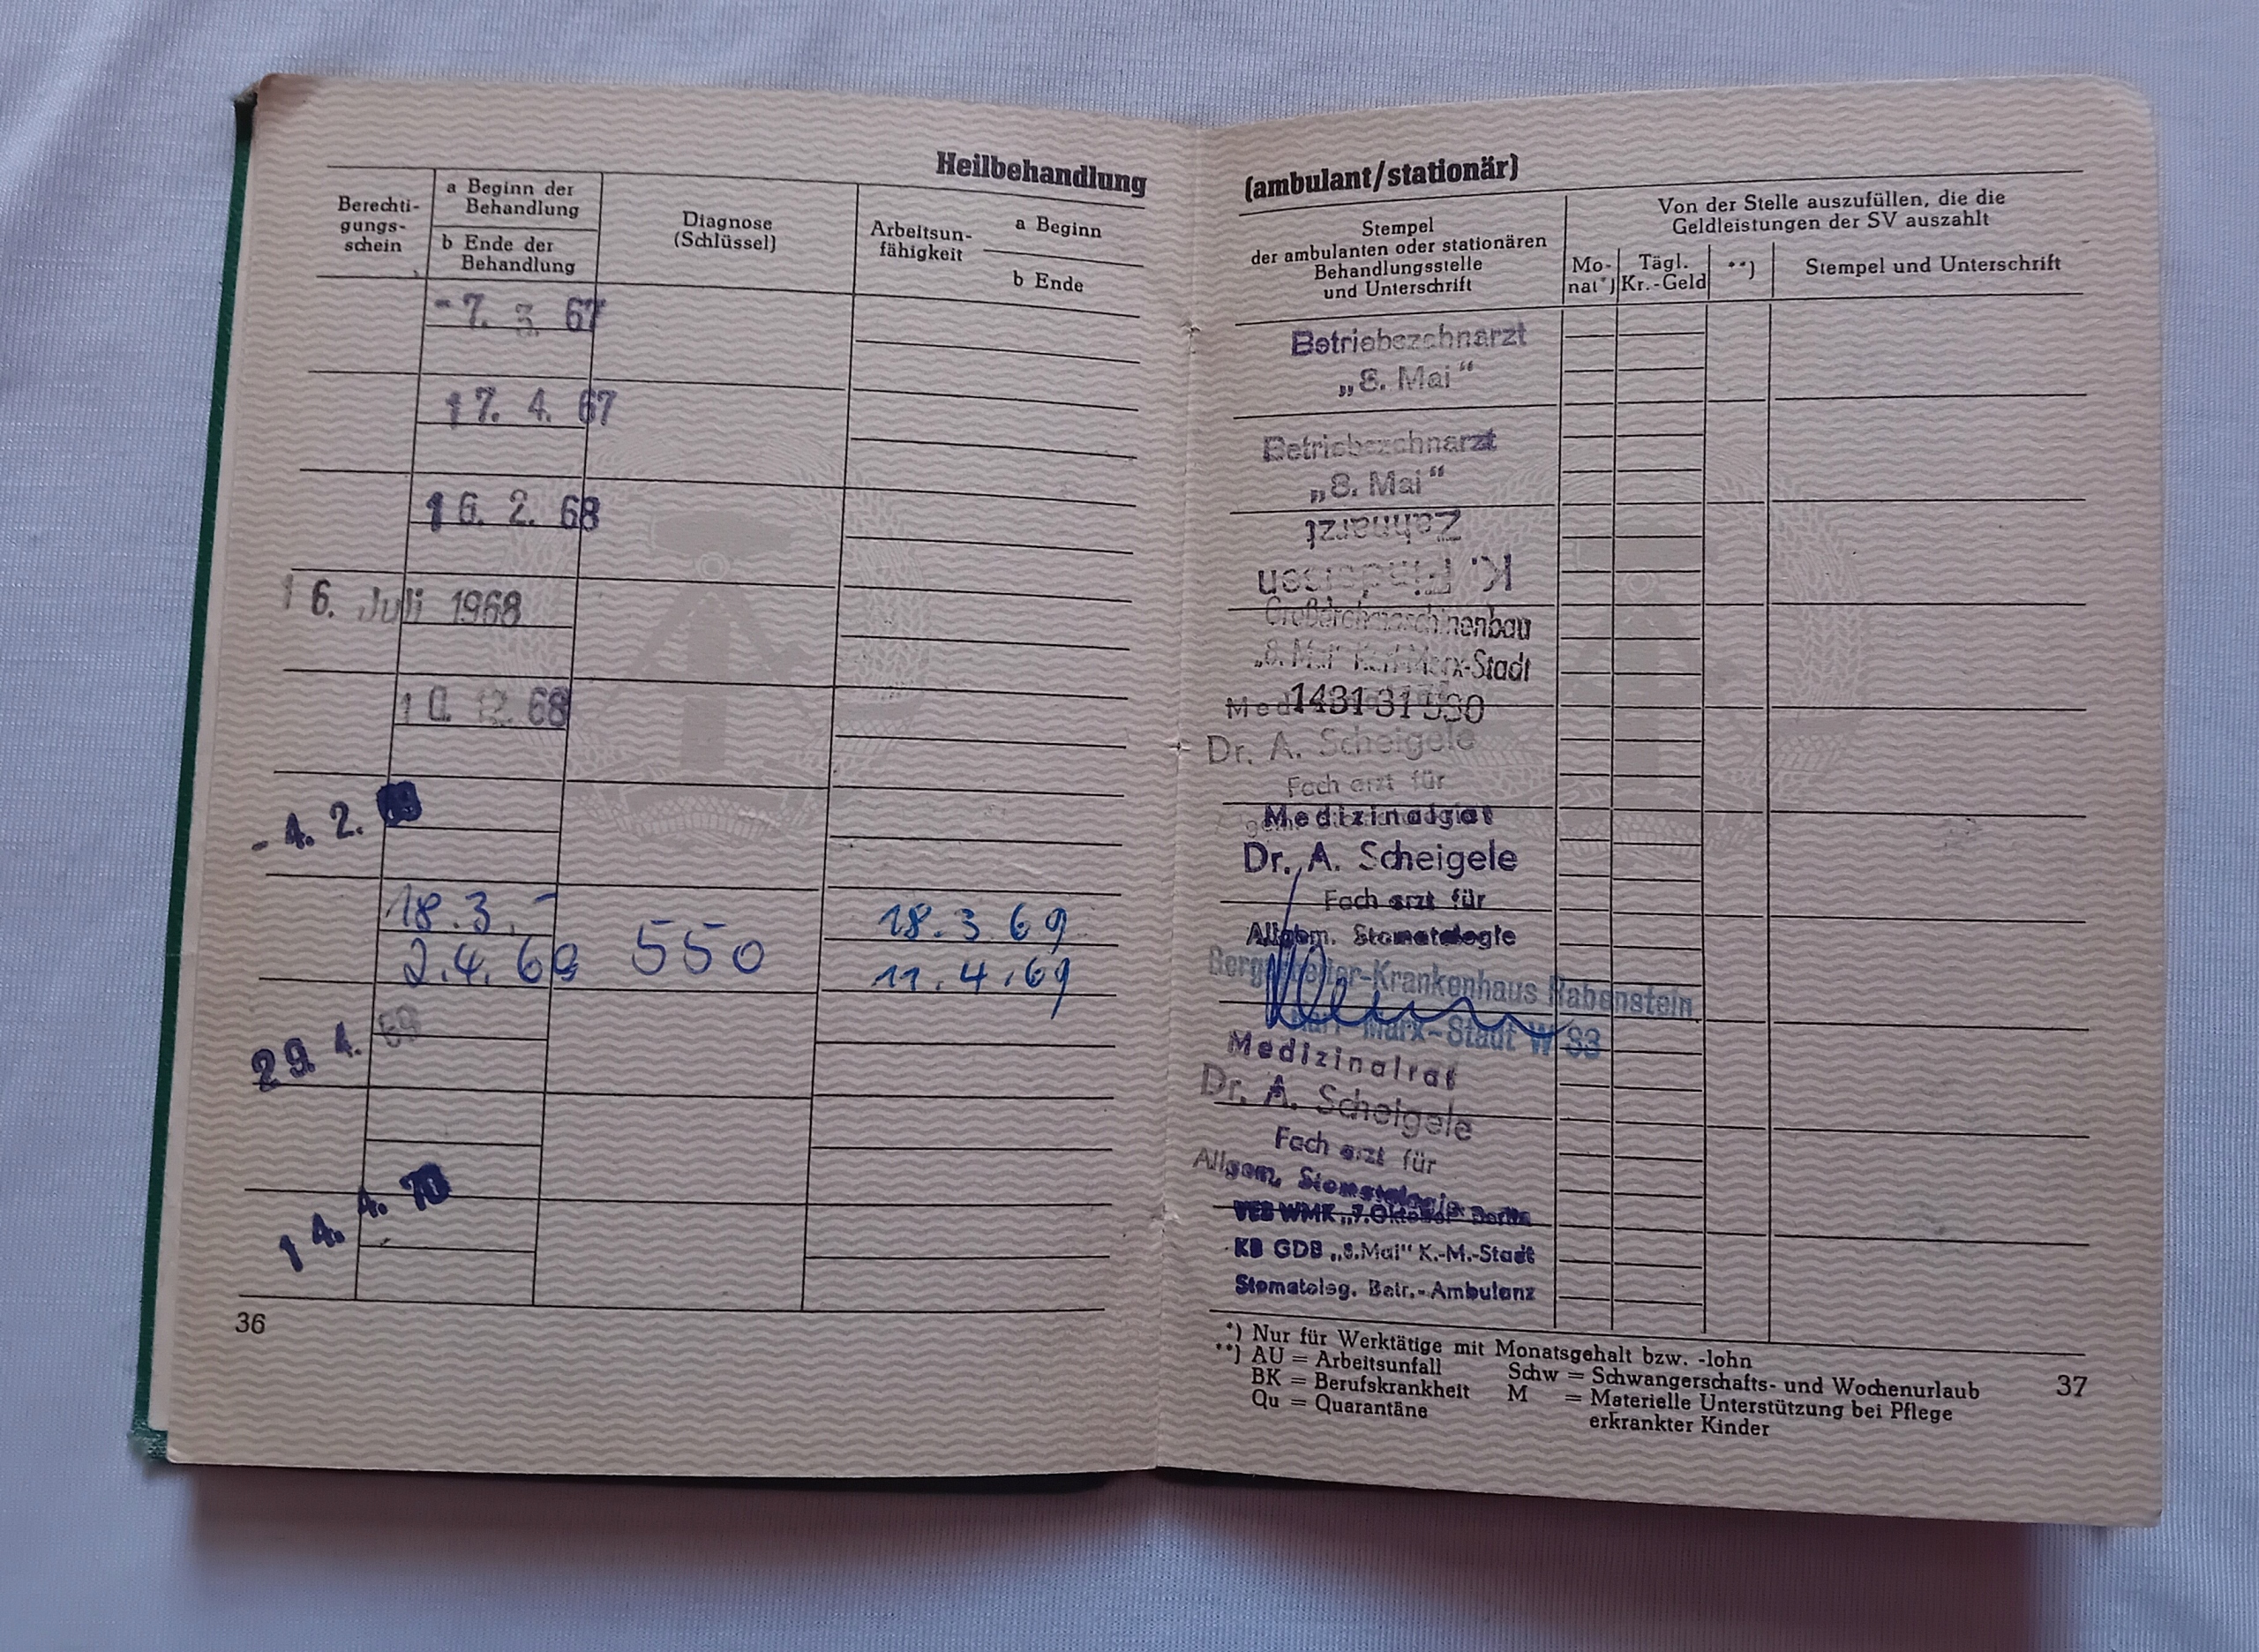 Heilbehandlung
Berechti-
gungs-
schein
a Beginn der
Behandlung
b Ende der
Behandlung
Diagnose
(Schlüssel)
Arbeitsun-
fähigkeit
a Beginn
b Ende
- 7. 3. 67
17. 4. 67
16. 2. 68
16. Juli 1968
10. 12. 68
- 4. 2. 69
18.3.-
2.4.69
550
18.3.69
11.4.69
29. 4. 69
14. 4. 70
36
(ambulant/stationär)
Stempel
der ambulanten oder stationären
Behandlungsstelle
und Unterschrift
Von der Stelle auszufüllen, die die
Geldleistungen der SV auszahlt
Mo-
nat*)
Tägl.
Kr.-Geld
**)
Stempel und Unterschrift
Betriebszahnarzt
„8. Mai“
Betriebszahnarzt
„8. Mai“
Zahnarzt
K.
Großdrehmaschinenbau
„8. Mai" Karl-Marx-Stadt
1431 31
Dr. A. Scheigele
Fach arzt für
Medizinalrat
Dr. A. Scheigele
Fach arzt für
Allgem. Stomatologie
-Krankenhaus Rabenstein
Karl-Marx-Stadt W 83
Medizinalrat
Dr. A. Scheigele
Fach arzt für
Allgem. Stomatologie
VEB WMK „7.Oktober" Berlin
KB GDB „8.Mai“ K.-M.-Stadt
Stomatolog. Betr.-Ambulanz
*) Nur für Werktätige mit Monatsgehalt bzw. -lohn
**) AU = Arbeitsunfall
BK = Berufskrankheit
Qu = Quarantäne
Schw = Schwangerschafts- und Wochenurlaub
M = Materielle Unterstützung bei Pflege
erkrankter Kinder
37